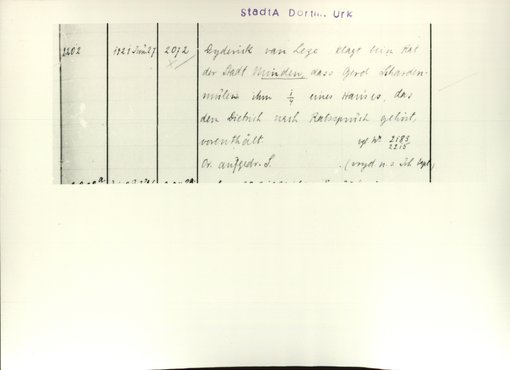 StadtA Dortm. Urk
2202 1421 Juni 27 2072 Dyderick van Lege klagt beim Rat
der Stadt Minden, dass Gerd Scharden-
mölen ihm 1/4 eines Hauses, das
den Dietrich nach Ratsspruch gehört,
vorenthält. vgl. Nr. 2183
2215
Or. aufgedr. S.